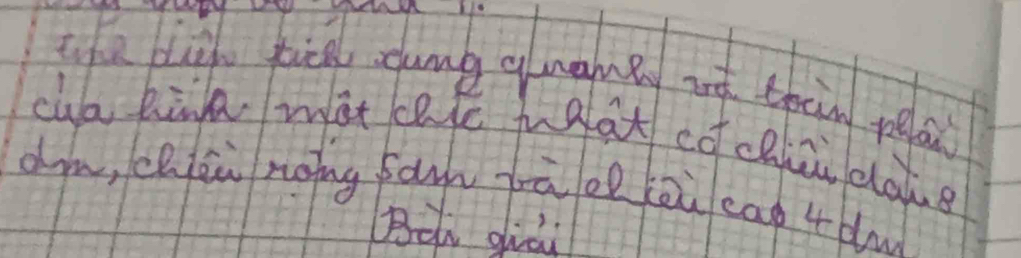 Tính diện tích xung quanh và toàn phần
của hình một chữ nhật có chiều dài 8
dm, chiều rộng 5dm và chiều cao 4 dm
Bài giải